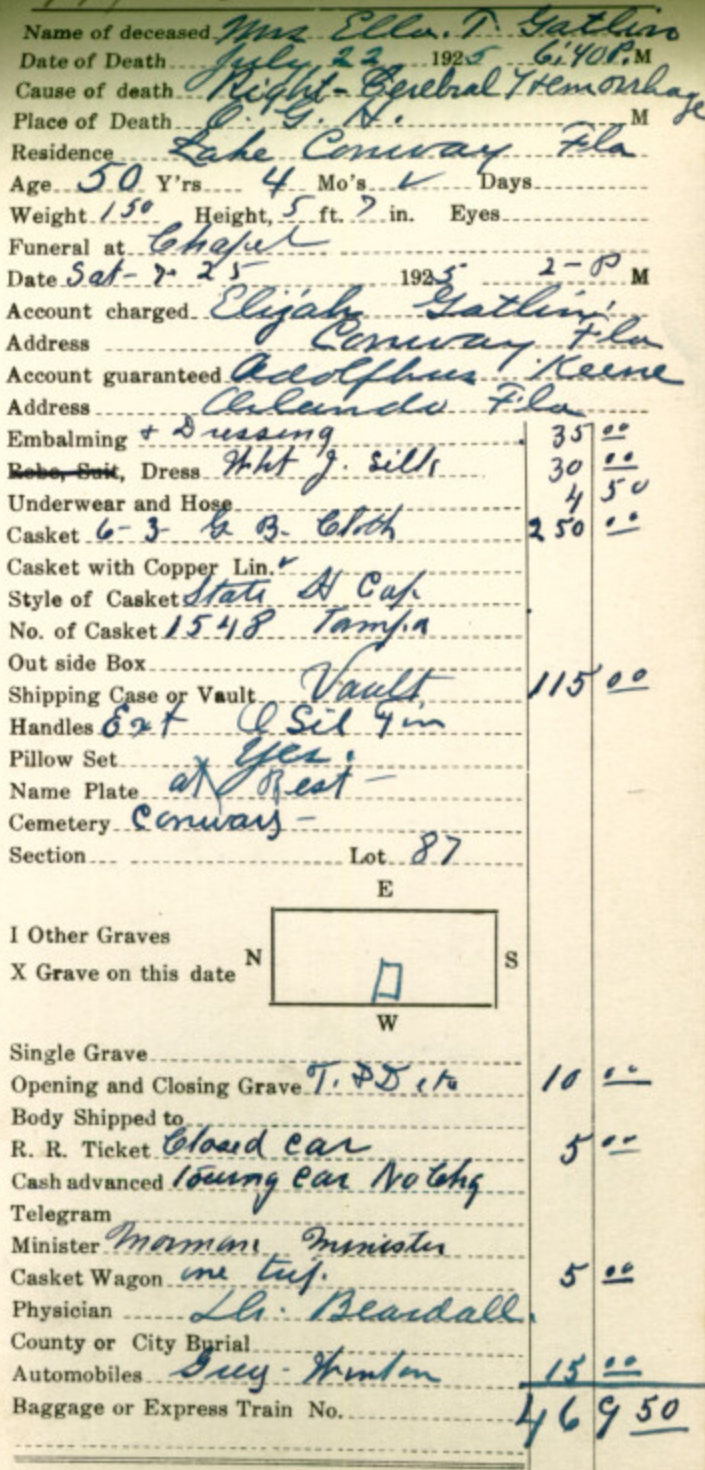 Name of deceased Mrs Ella. T. Gatlin
Date of Death July 22 1925 6:40 P. M
Cause of death Right - Cerebral Hemorrhage
Place of Death O. G. H. M
Residence Lake Conway Fla
Age 50 Y'rs 4 Mo's ✓ Days
Weight 150 Height, 5 ft. 7 in. Eyes
Funeral at Chapel
Date Sat - 7. 25 1925 2 - P M
Account charged Elijah Gatlin
Address Conway Fla
Account guaranteed Adolphus Keene
Address Orlando Fla
Embalming + Dressing 35 00
Robe, Suit, Dress Wht J. Silk 30 00
Underwear and Hose 4 50
Casket 6-3 G B. Cloth 250 00
Casket with Copper Lin. ✓
Style of Casket State H Cap.
No. of Casket 1548 Tampa
Out side Box
Shipping Case or Vault Vault 115 00
Handles Ext O Sil
Pillow Set Yes.
Name Plate at Rest -
Cemetery Conway -
Section Lot 87
E
I Other Graves
N S
X Grave on this date
W
Single Grave
Opening and Closing Grave T. P D 10 00
Body Shipped to
R. R. Ticket Closed car 5 00
Cash advanced Touring car No Chg
Telegram
Minister Mormon Minister
Casket Wagon one trip. 5 00
Physician Dr. Beardall.
County or City Burial
Automobiles Grey - Winton 15 00
Baggage or Express Train No. 469 50